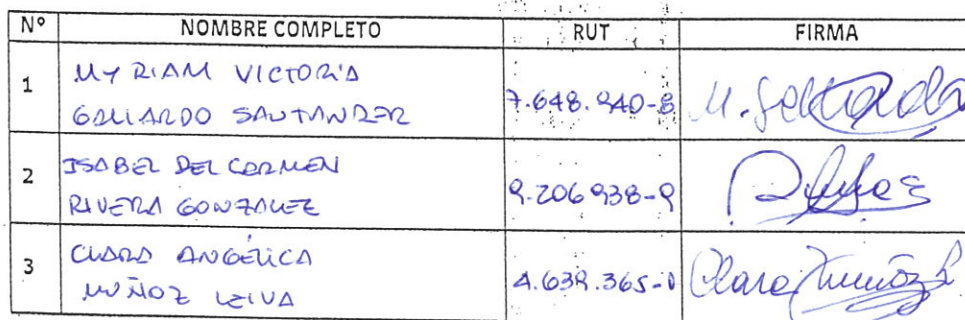 N° NOMBRE COMPLETO RUT FIRMA
1 MYRIAM VICTORIA
GALLARDO SANTANDER 7.648.940-8 M. Gallardo
2 ISABEL DEL CARMEN
RIVERA GONZALEZ 9.206.938-9
3 CLARA ANGÉLICA
MUÑOZ LEIVA 4.639.365- Clara Muñoz L